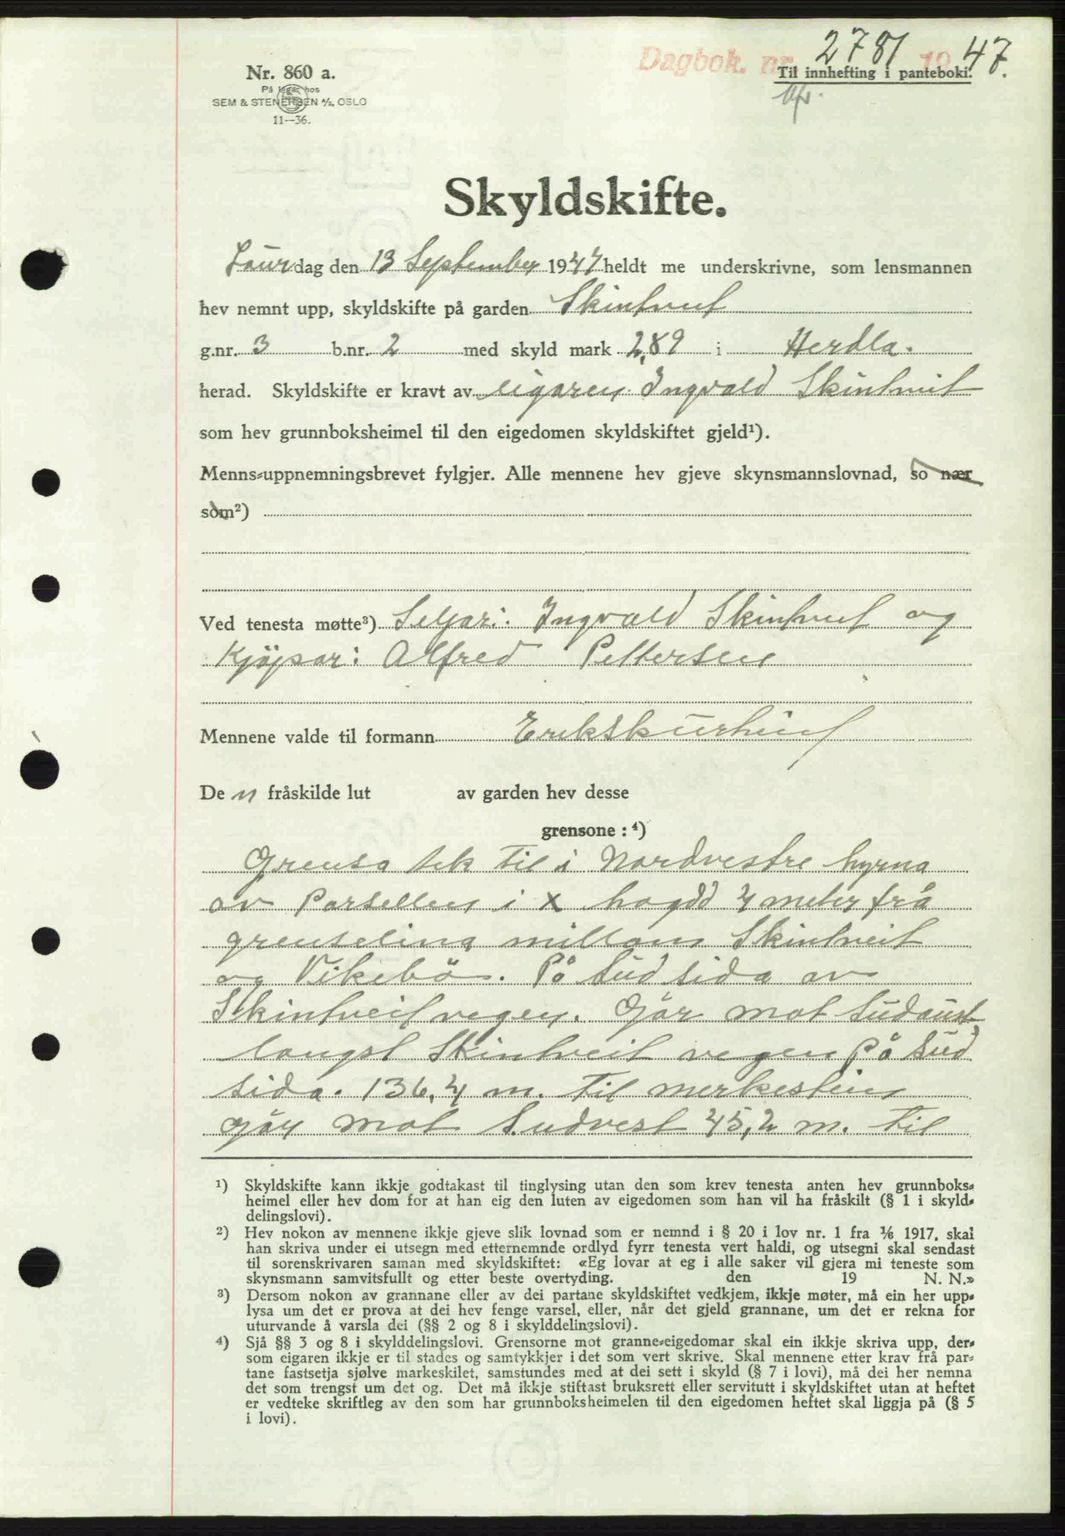 Dagbok. nr. 2781 1947.
Nr. 860 a.
Til innhefting i panteboki.
På lager hos
SEM & STENERSEN A/S, OSLO
11—36.
Skyldskifte.
Laurdag den 13 September 1947 heldt me underskrivne, som lensmannen
hev nemnt upp, skyldskifte på garden Skintveit
g.nr. 3 b.nr. 2 med skyld mark 2,89 i Herdla.
herad. Skyldskifte er kravt av eigaren Ingvald Skintveit
som hev grunnboksheimel til den eigedomen skyldskiftet gjeld¹).
Menns-uppnemningsbrevet fylgjer. Alle mennene hev gjeve skynsmannslovnad, so nær
som²)
Ved tenesta møtte³) Seljar: Ingvald Skintveit og
Kjöpar: Alfred Pettersen
Mennene valde til formann Erik Skurtveit
De n fråskilde lut av garden hev desse
grensone : ⁴)
Grensa tek til i Nordvestre hyrna
av Parsellen i x hogdd 4 meter frå
grenselina millom Skintveit
og Vikebö. På Sud sida av
Skintveitvegen. Gör mot Sudaust
langst Skintveit vegen på Sud
sida. 136,4 m. til merkestein
gör mot Sudvest 45,2 m. til
¹) Skyldskifte kann ikkje godtakast til tinglysing utan den som krev tenesta anten hev grunnboks-
heimel eller hev dom for at han eig den luten av eigedomen som han vil ha fråskilt (§ 1 i skyld-
delingslovi).
²) Hev nokon av mennene ikkje gjeve slik lovnad som er nemnd i § 20 i lov nr. 1 fra ⅙ 1917, skal
han skriva under ei utsegn med etternemnde ordlyd fyrr tenesta vert haldi, og utsegni skal sendast
til sorenskrivaren saman med skyldskiftet: «Eg lovar at eg i alle saker vil gjera mi teneste som
skynsmann samvitsfullt og etter beste overtyding. den 19 N. N.»
³) Dersom nokon av grannane eller av dei partane skyldskiftet vedkjem, ikkje møter, må ein her upp-
lysa um det er prova at dei hev fenge varsel, eller, når det gjeld grannane, um det er rekna for
uturvande å varsla dei (§§ 2 og 8 i skylddelingslovi).
⁴) Sjå §§ 3 og 8 i skylddelingslovi. Grensorne mot granne-eigedomar skal ein ikkje skriva upp, der-
som eigaren ikkje er til stades og samtykkjer i det som vert skrive. Skal mennene etter krav frå par-
tane fastsetja sjølve markeskilet, samstundes med at dei sett i skyld (§ 7 i lovi), må dei her nemna
det som trengst um det og. Det må ikkje stiftast bruksrett eller servitutt i skyldskiftet utan at heftet
er vedteke skriftleg av den som har grunnboksheimelen til den eigedomen heftet skal liggja på (§ 5
i lovi).